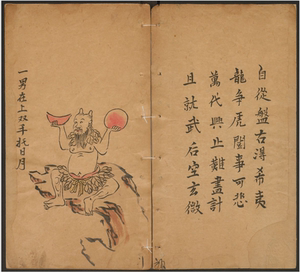 自從盤古得希夷
龍爭虎鬪事可悲
萬代興止難盡計
且就武后定玄微
一男在上双手托日月